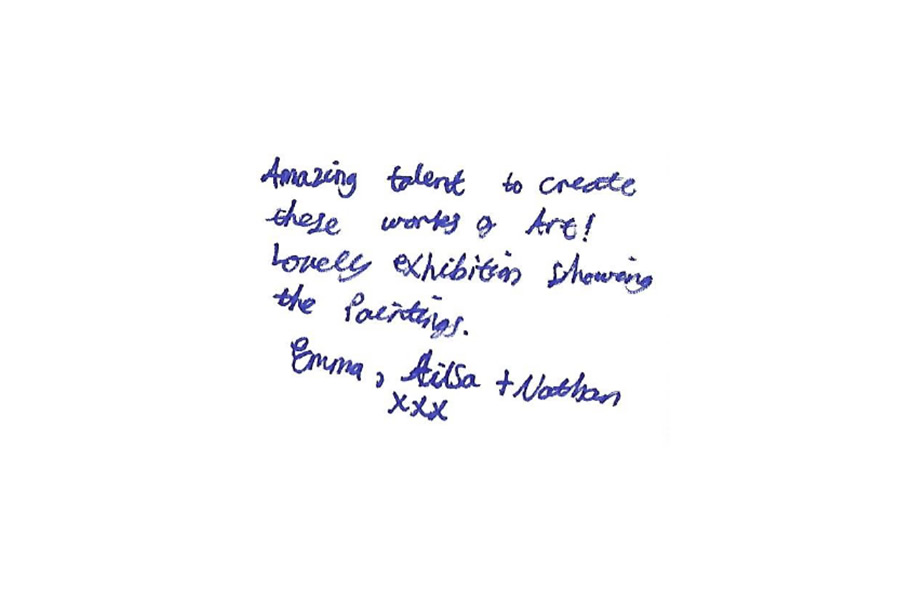 Amazing talent to create
these works of Art!
Lovely exhibition showing
the Paintings.
Emma, Ailsa + Nathan
xxx